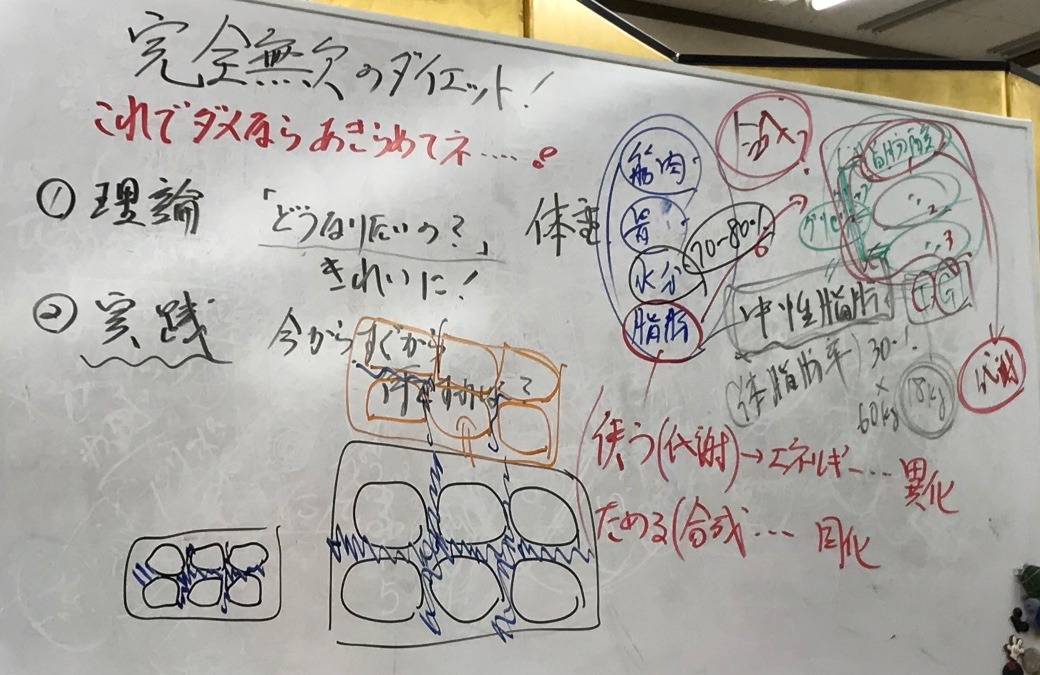 完全無欠のダイエット!
これでダメならあきらめてネ....。
① 理論
「どうなりたいの?」
きれいに!
② 実践
今からすぐから
体重
筋肉
骨
水分
脂肪
70-80%
中性脂肪
TG
(体脂肪率) 30%
×
60kg
18kg
代謝
脂肪酸
〃2
〃3
使う(代謝)→エネルギー....異化
ためる(合成....同化